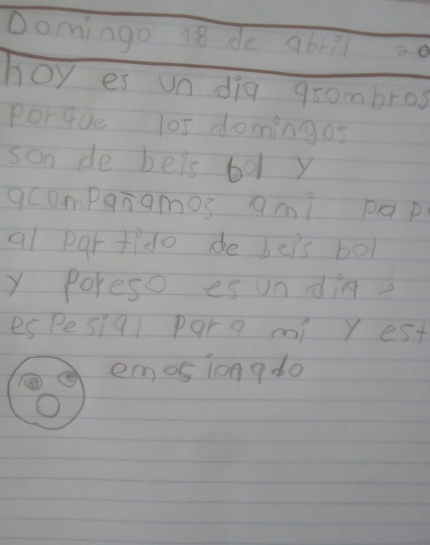 Domingo 18 de abril 20
hoy es un dia asombros
porque los domingos
son de beis bol y
acompañamos ami pap
al partido de beis bol
y poreso es un dia
espesial para mi y est
emosionado